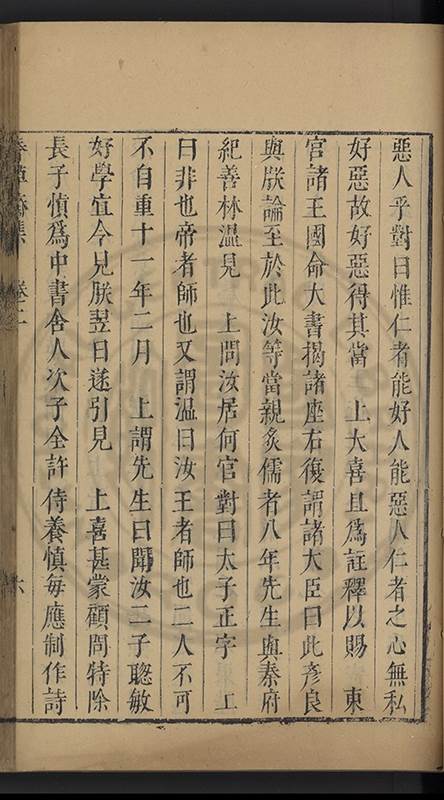 惡人乎對曰惟仁者能好人能惡人仁者之心無私
好惡故好惡得其當　上大喜且爲註釋以賜　東
宮諸王國命大書揭諸座右復謂諸大臣曰此彥良
與朕論至於此汝等當親炙儒者八年先生與秦府
紀善林溫見　上問汝居何官對曰太子正字　上
曰非也帝者師也又謂溫曰汝王者師也二人不可
不自重十一年二月　上謂先生曰聞汝二子聰敏
好學宜令見朕翌日遂引見　上喜甚蒙顧問特除
長子慎爲中書舍人次子全許侍養慎每應制作詩
集　卷二　六